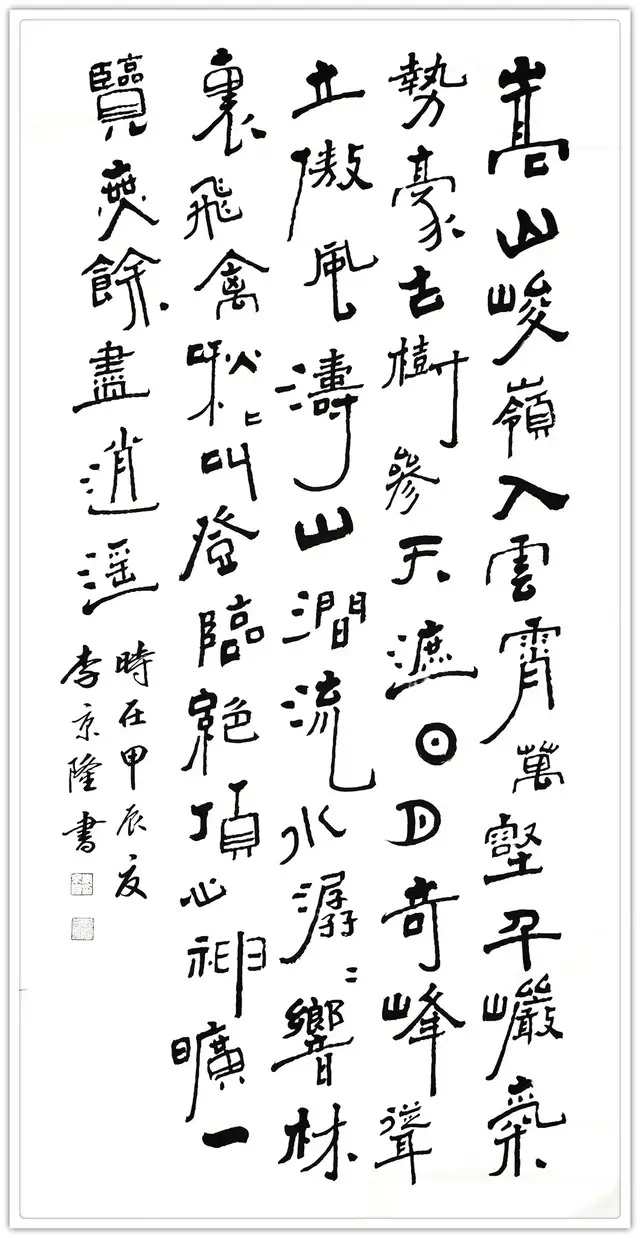 嵩山峻嶺入雲霄萬壑千巖氣
勢豪古樹參天遮日月奇峰聳
立傲風濤山澗流水潺々響林
裏飛禽啾々叫登臨絕頂心神曠一
覽無餘盡逍遥
時在甲辰夏
李京隆書